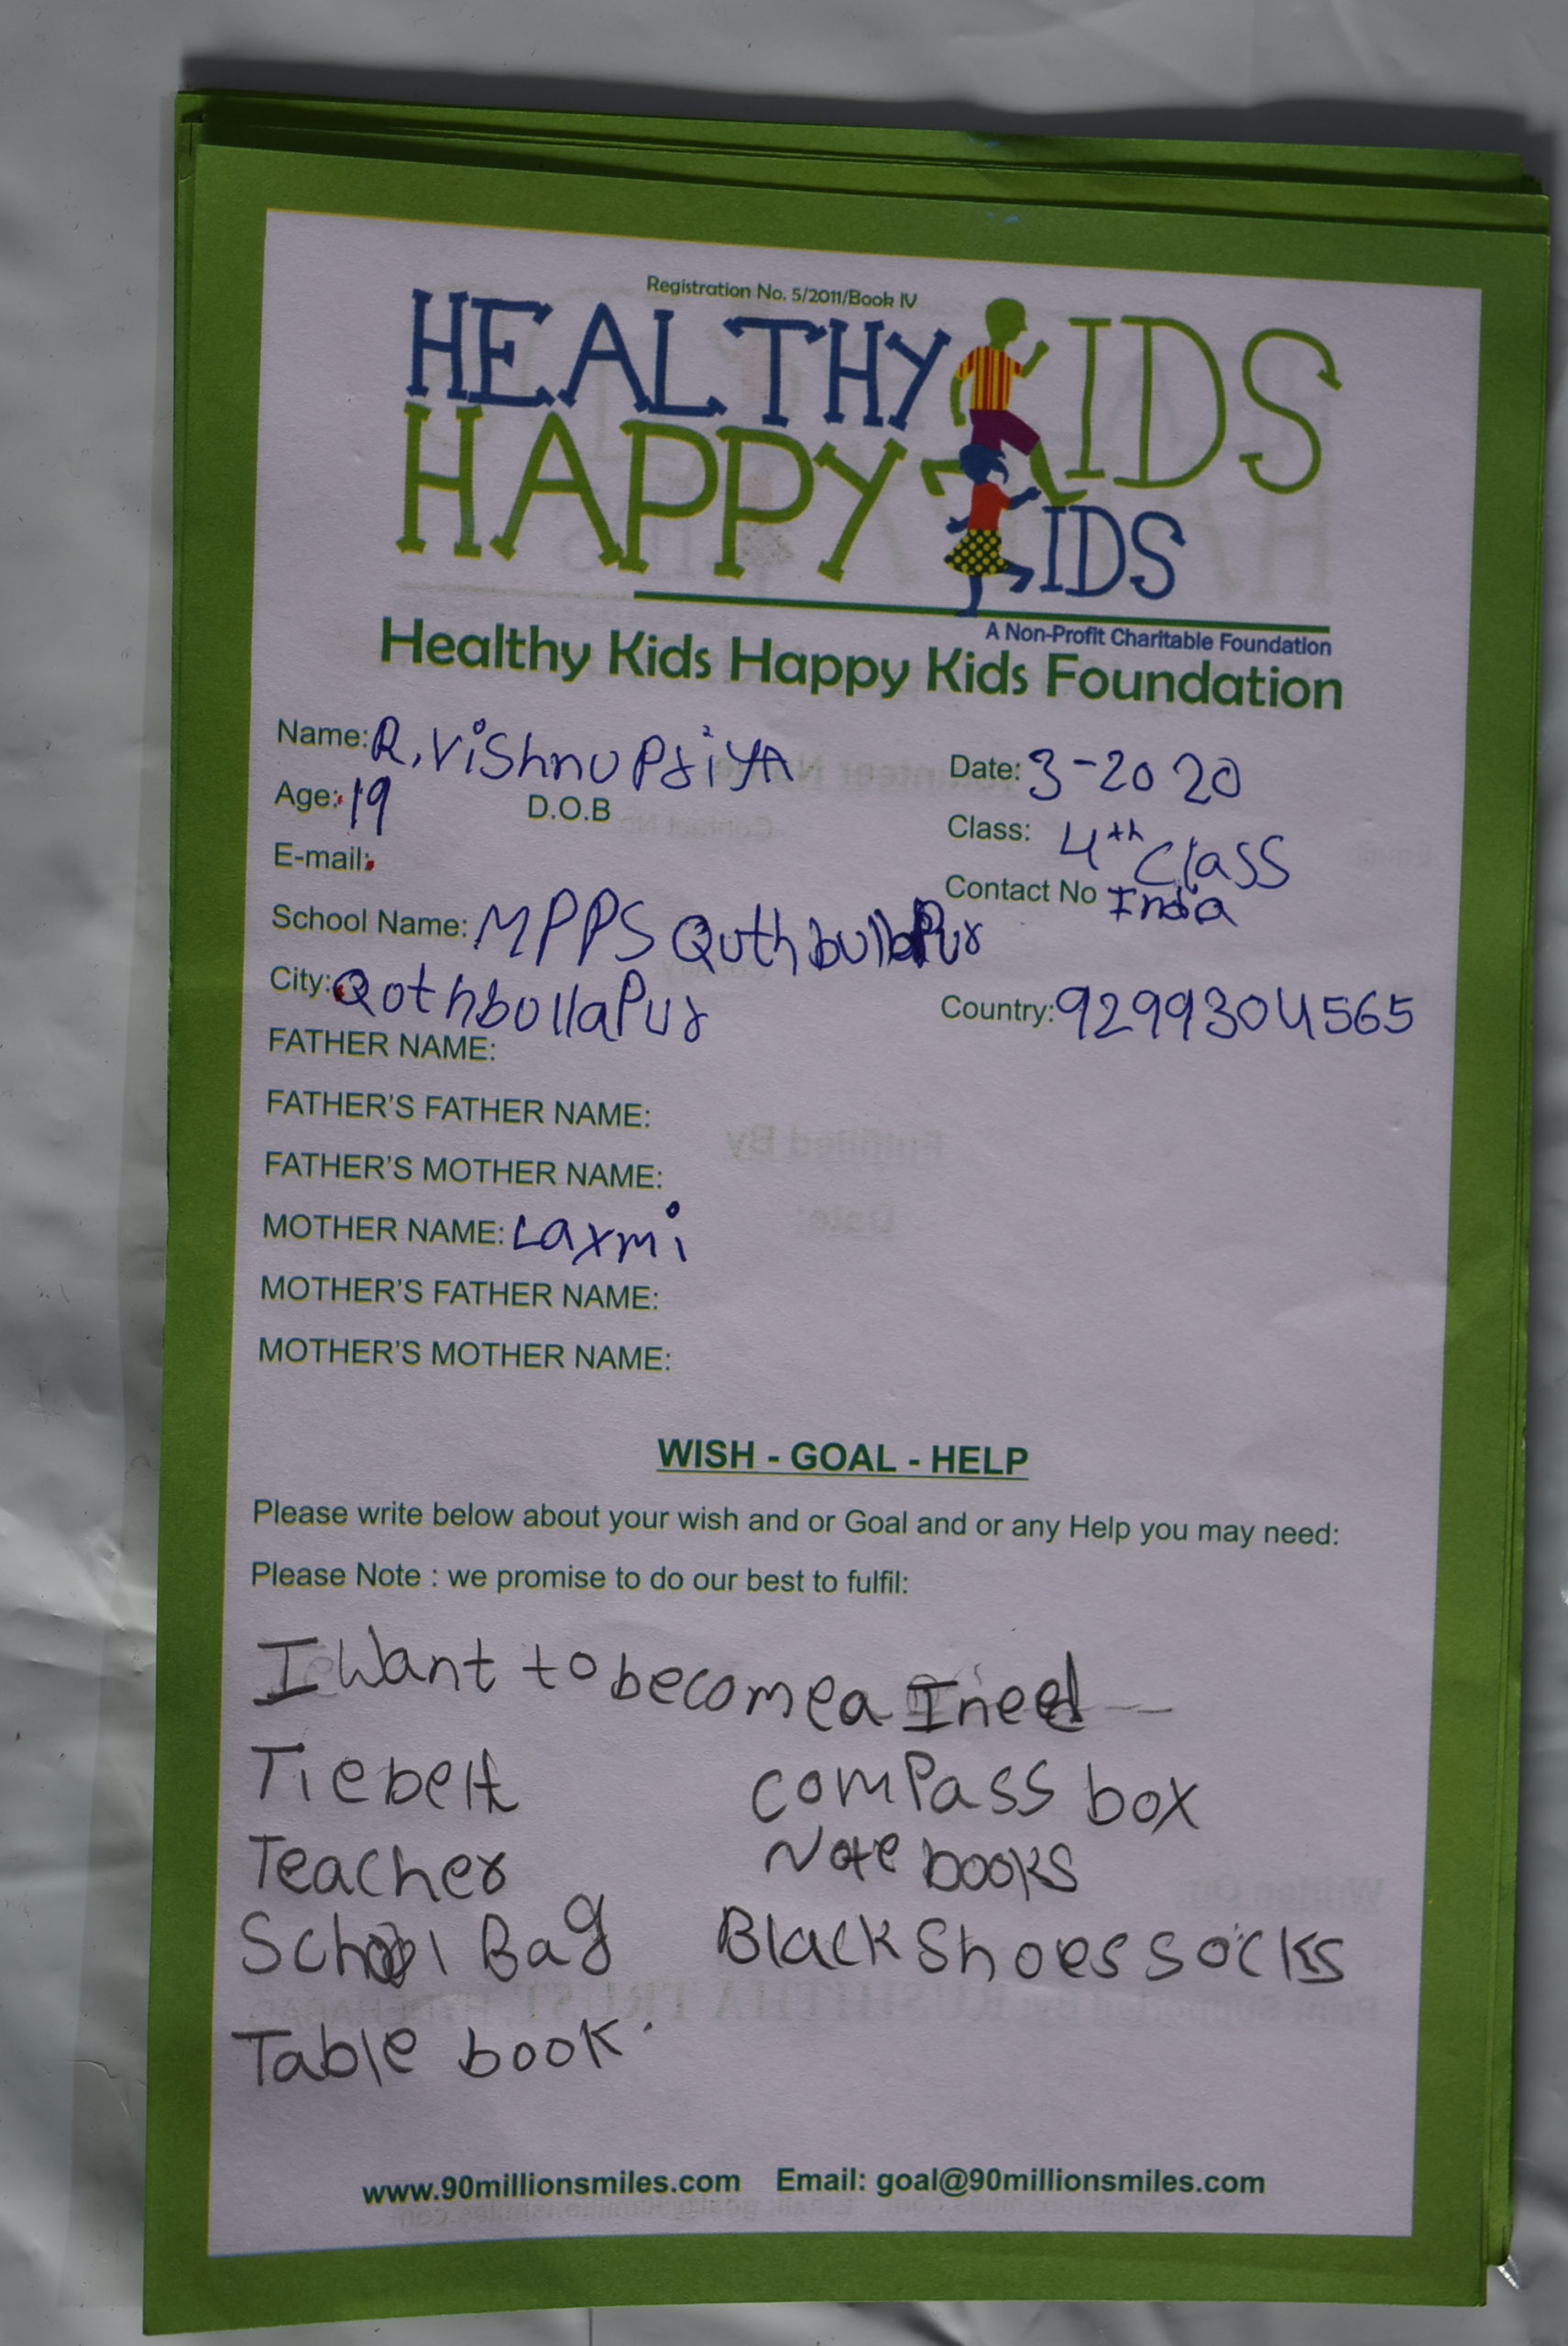 Registration No. 5/2011/Book IV
HEALTHY KIDS
HAPPY KIDS
A Non-Profit Charitable Foundation
Healthy Kids Happy Kids Foundation
Name: R. Vishnu Priya Date: 3-2020
Age: 19 D.O.B Class: 4th Class
E-mail: Contact No India
School Name: MPPS Quthbullapur
City: Qothbollapur Country: 9299304565
FATHER NAME:
FATHER'S FATHER NAME:
FATHER'S MOTHER NAME:
MOTHER NAME: Laxmi
MOTHER'S FATHER NAME:
MOTHER'S MOTHER NAME:
WISH - GOAL - HELP
Please write below about your wish and or Goal and or any Help you may need:
Please Note : we promise to do our best to fulfil:
I want to become a I need
Tie belt compass box
Teacher Note books
School Bag Black Shoes socks
Table book.
www.90millionsmiles.com Email: goal@90millionsmiles.com